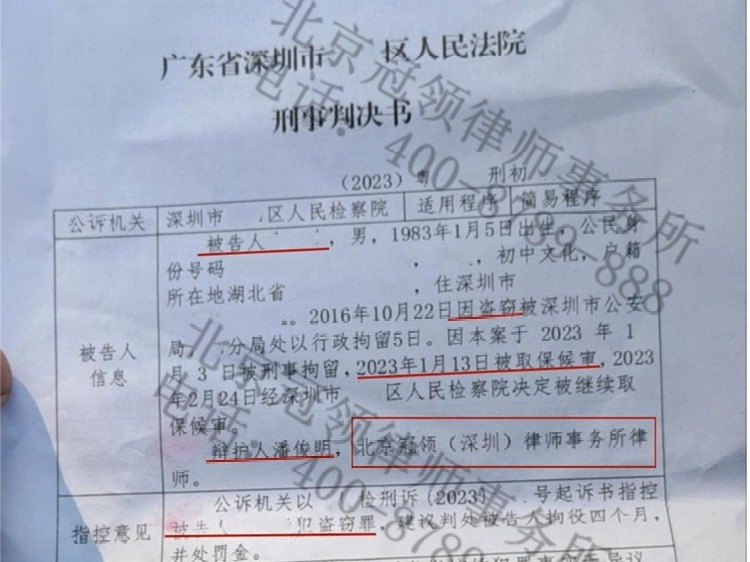 广东省深圳市 区人民法院
刑事判决书
（2023）粤 刑初
公诉机关 深圳市 区人民检察院 适用程序 简易程序
被告人 ，男，1983年1月5日出生，公民身
份号码 ， ，初中文化，户籍
所在地湖北省 ，住深圳市
。。2016年10月22日因盗窃被深圳市公安
局 分局处以行政拘留5日。因本案于 2023 年 1
月 3 日被刑事拘留，2023年1月13日被取保候审，2023
年2月24日经深圳市 区人民检察院决定被继续取
保候审。
被告人
信息
辩护人潘俊明，北京冠领（深圳）律师事务所律
师。
指控意见
公诉机关以 检刑诉（2023） 号起诉书指控
被告人 犯盗窃罪，建议判处被告人拘役四个月，
并处罚金。
北京冠领律师事务所
电话：400-8789-888
北京冠领律师事务所
电话：400-8789